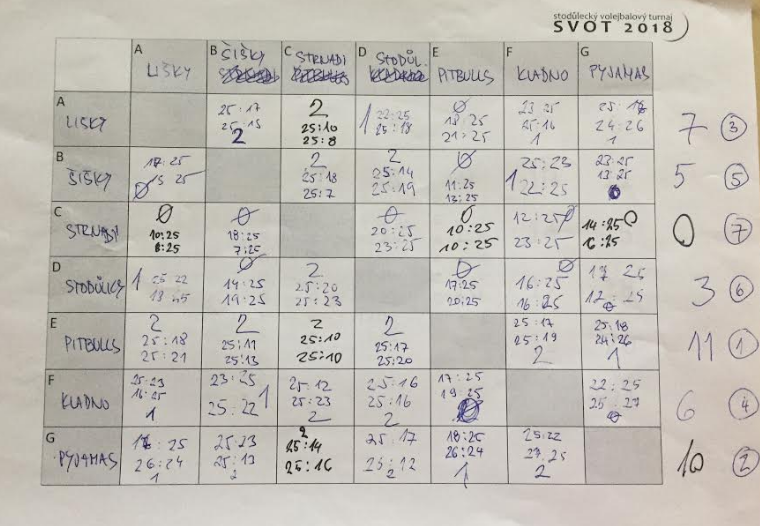 stodůlecký volejbalový turnaj
SVOT 2018
A B C D E F G
LIŠKY ŠIŠKY STRNADI STODŮL. PITBULLS KLADNO PYJAMAS
A LIŠKY
25:17 2 1 22:25 0 23:25 25:18
25:15 25:10 25:18 18:25 25:16 24:26
2 25:8 21:25 1 1
7 3
B ŠIŠKY
17:25 2 2 0 25:23 23:25
0 15 25 25:18 25:14 11:25 1 22:25 13:25
25:7 25:19 13:25 0
5 5
C STRNADI
0 0 0 0 12:25 0 14:25 0
10:25 18:25 20:25 10:25 23:25 16:25
8:25 7:25 23:25 10:25
0 7
D STODŮLKY
1 25 22 0 2 0 16:25 0 17 25
18 25 14:25 25:20 17:25 16:25 12 25
19:25 25:23 20:25 0
3 6
E PITBULLS
2 2 2 2 25:17 25:18
25:18 25:11 25:10 25:17 25:19 24:26
25:21 25:13 25:10 25:20 2 1
11 1
F KLADNO
25:23 23:25 25:12 25:16 17:25 22:25
16:25 25:22 1 25:23 25:16 19:25 25:27
1 2 2 0 0
6 4
G PYJAMAS
18:25 25:23 2 25:17 18:25 25:22
26:24 25:13 25:14 25:12 26:24 27:25
1 2 25:16 2 1 2
10 2